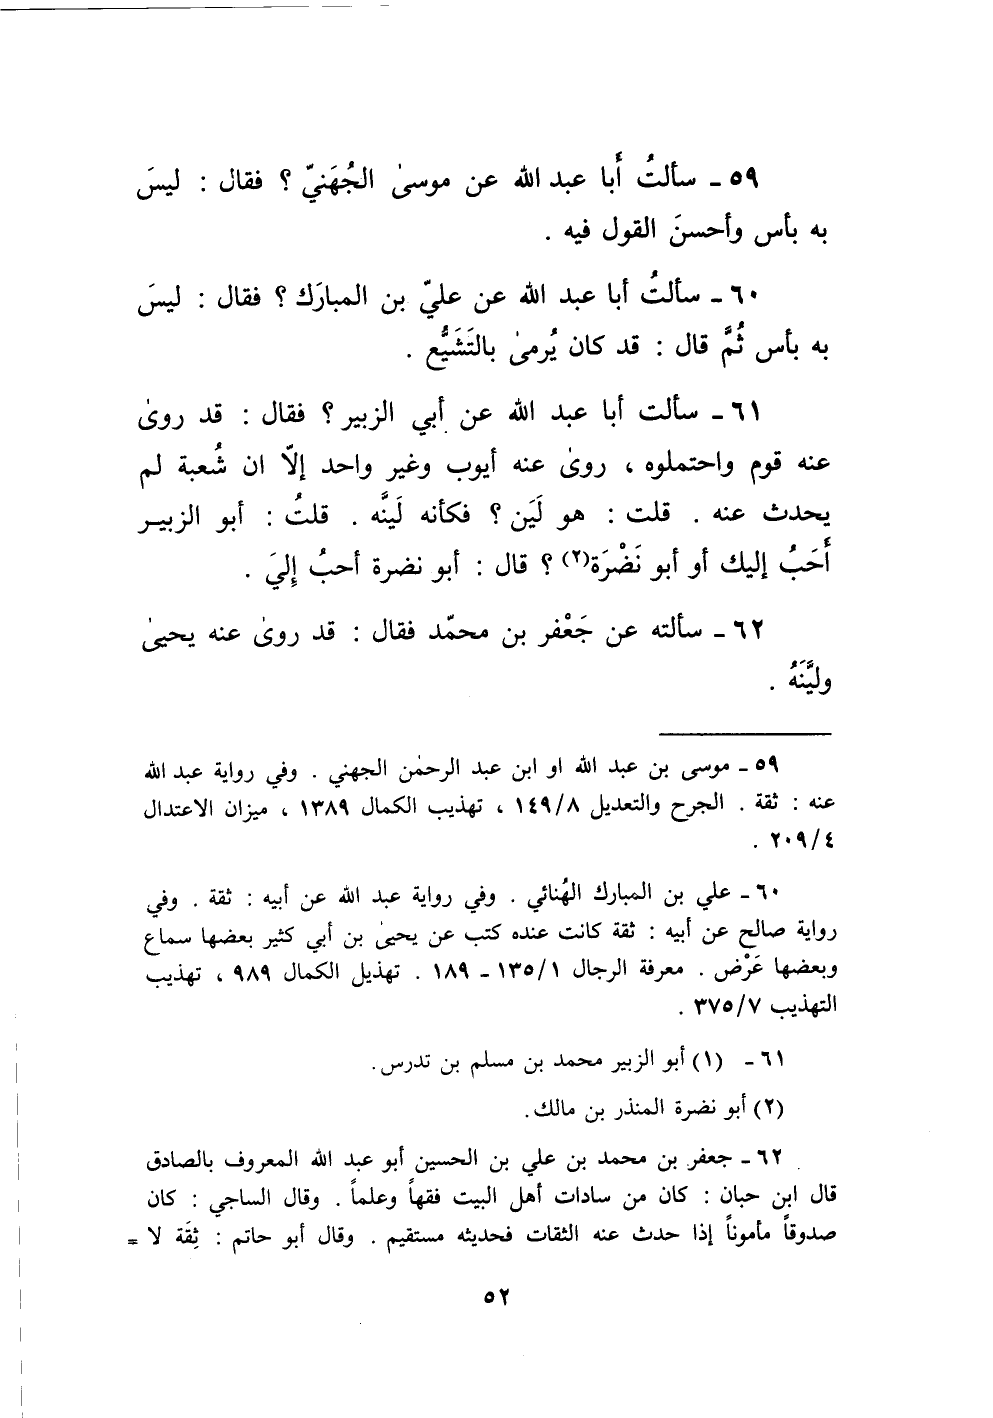 ٥٩ ـ سألتُ أَبا عبد الله عن موسىٰ الجُهَنيّ ؟ فقال : ليسَ
به بأس وأحسنَ القول فيه .
٦٠ ـ سألتُ أبا عبد الله عن عليّ بن المبارَك ؟ فقال : ليسَ
به بأس ثُمَّ قال : قد كان يُرمىٰ بالتَشَيُّع .
٦١ ـ سألت أبا عبد الله عن أبي الزبير ؟ فقال : قد روىٰ
عنه قوم واحتملوه ، روىٰ عنه أيوب وغير واحد إلّا ان شُعبة لم
يحدث عنه . قلت : هو لَيَن ؟ فكأنه لَينَّه . قلتُ : أبو الزبيـر
أَحَبُ إليك أو أبو نَضْرَة(٢) ؟ قال : أبو نضرة أحبُ إِليَ .
٦٢ ـ سألته عن جَعْفر بن محمّد فقال : قد روىٰ عنه يحيىٰ
وليَّنَهُ .
٥٩ ـ موسى بن عبد الله او ابن عبد الرحمٰن الجهني . وفي رواية عبد الله
عنه : ثقة . الجرح والتعديل ١٤٩/٨ ، تهذيب الكمال ١٣٨٩ ، ميزان الاعتدال
٢٠٩/٤ .
٦٠ ـ علي بن المبارك الهُنائي . وفي رواية عبد الله عن أبيه : ثقة . وفي
رواية صالح عن أبيه : ثقة كانت عنده كتب عن يحيىٰ بن أبي كثير بعضها سماع
وبعضها عَرْض . معرفة الرجال ١٣٥/١ ـ ١٨٩ . تهذيل الكمال ٩٨٩ ، تهذيب
التهذيب ٣٧٥/٧ .
٦١ ـ (١) أبو الزبير محمد بن مسلم بن تدرس .
(٢) أبو نضرة المنذر بن مالك .
٦٢ ـ جعفر بن محمد بن علي بن الحسين أبو عبد الله المعروف بالصادق
قال ابن حبان : كان من سادات أهل البيت فقهاً وعلماً . وقال الساجي : كان
صدوقاً مأموناً إذا حدث عنه الثقات فحديثه مستقيم . وقال أبو حاتم : ثِقَة لا =
٥٢